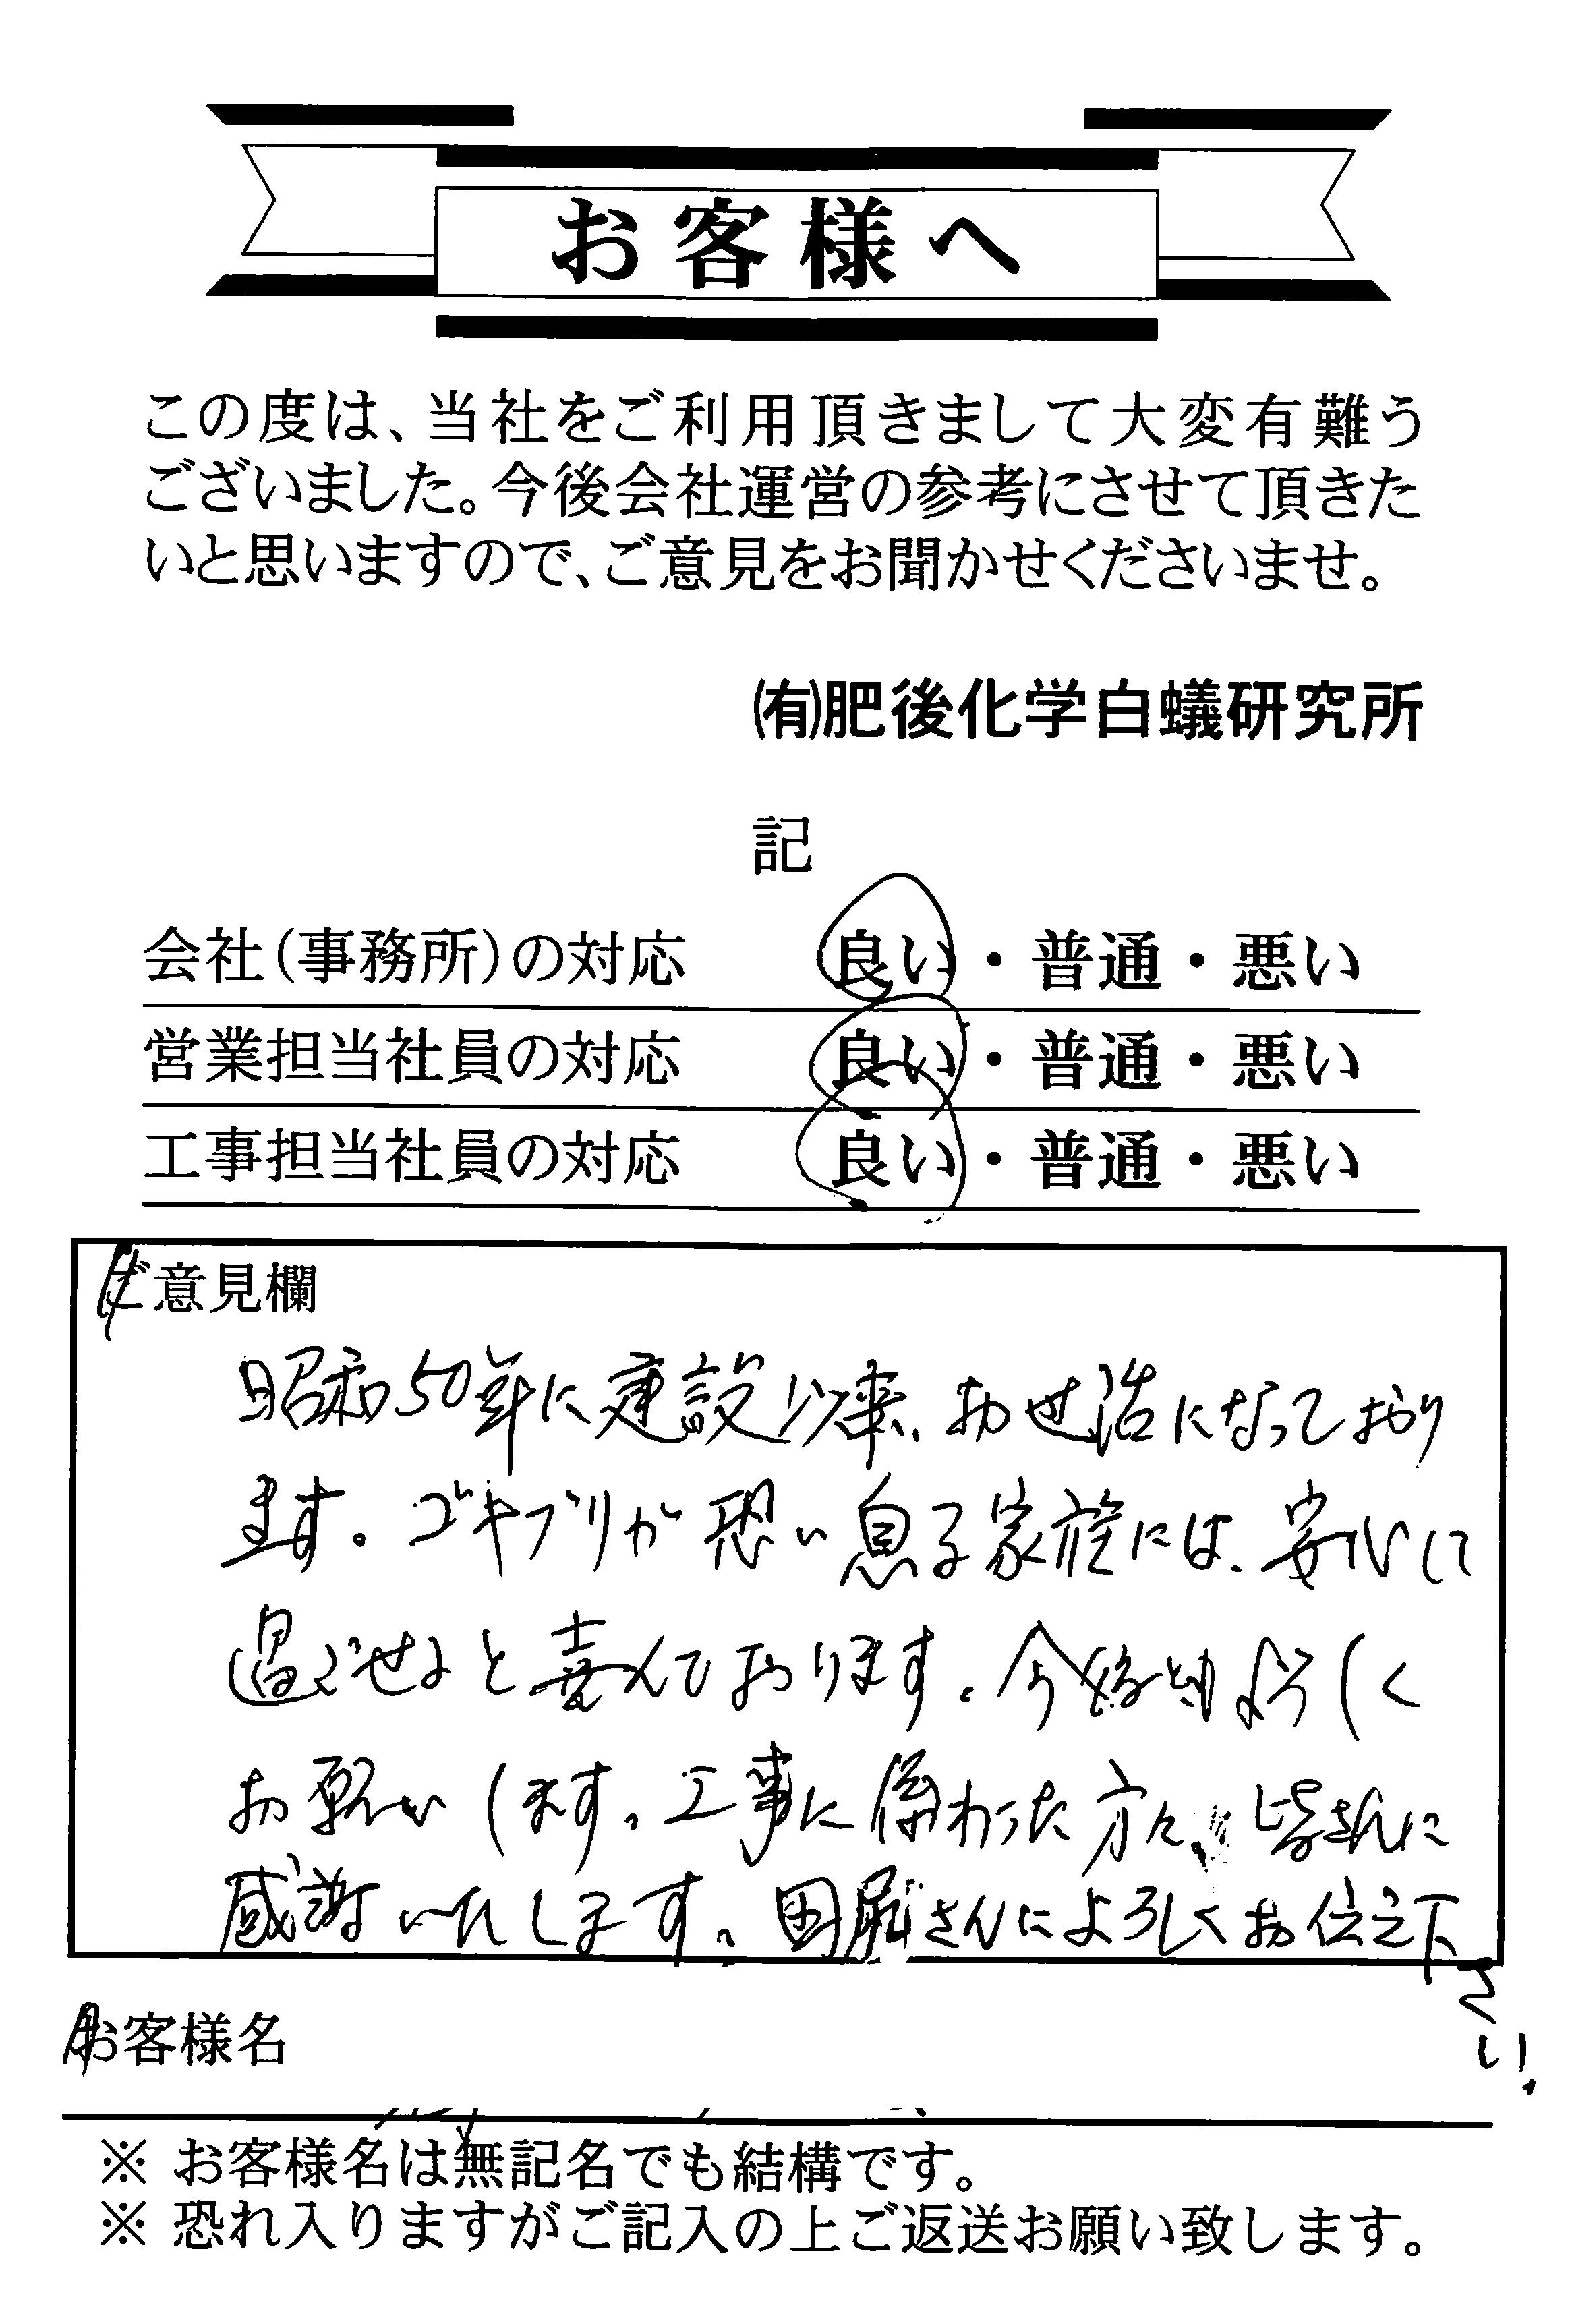 お客様へ
この度は、当社をご利用頂きまして大変有難う
ございました。今後会社運営の参考にさせて頂きた
いと思いますので、ご意見をお聞かせくださいませ。
㈲肥後化学白蟻研究所
記
会社(事務所)の対応 良い・普通・悪い
営業担当社員の対応 良い・普通・悪い
工事担当社員の対応 良い・普通・悪い
ご意見欄
昭和50年に建設以来、お世話になっており
ます。ゴキブリが恐い息子家族には、安心して
過ごせると喜んでおります。今後とも よろしく
お願いします。工事に係わった方々、皆さんに
感謝いたします。田尻さんによろしくお伝え下
さい。
お客様名
※ お客様名は無記名でも結構です。
※ 恐れ入りますがご記入の上ご返送お願い致します。